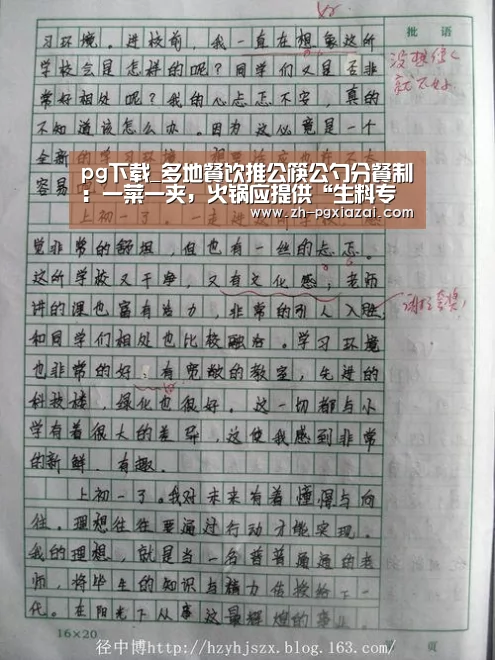 批 语
习环境。进校前,我一直在想象这所
学校会是怎样的呢?同学们又是否非
常好相处呢?我的心忐忑不安,真的
不知道该怎么办。因为这必竟是一个
全新的学习环境
容易
pg下载_多地餐饮推公筷公勺分餐制
:一菜一夹,火锅应提供“生料专
www.zh-pgxiazai.com
上初一了。一走进这所学校,
觉非常的舒坦,但也有一丝的忐忑。
这所学校又干净,又有文化感;老师
讲的课也富有活力,非常的引人入胜,
和同学们相处也比较融洽。学习环境
也非常的好:有宽敞的教室,先进的
科技楼,绿化也很好。这一切都与小
学有着很大的差异,这使我感到非常
的新鲜、有趣。
上初一了。我对未来有着憧憬与向
往。理想往往要通过行动才能实现。
我的理想,就是当一名普普通通的老
师,将毕生的知识与精力传授给下一
代。在阳光下从事这最辉煌的事业。
16×20
页
径中博http://hzyhjszx.blog.163.com/